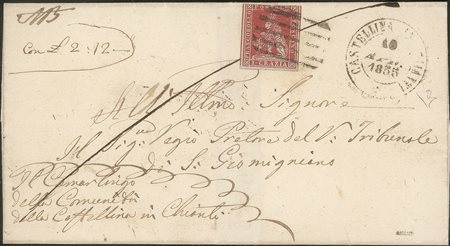 Con £ 2:12 -
FRANCOBOLLO POSTALE TOSCANO
1 CRAZIA
CASTELLINA IN CHIANTI
10
1855
All' Illmo Signore
Il Sig:re Regio Pretore del V: Tribunale
di S. Gismigniano
Il Camarlingo
della Comunità
della Castellina in Chianti